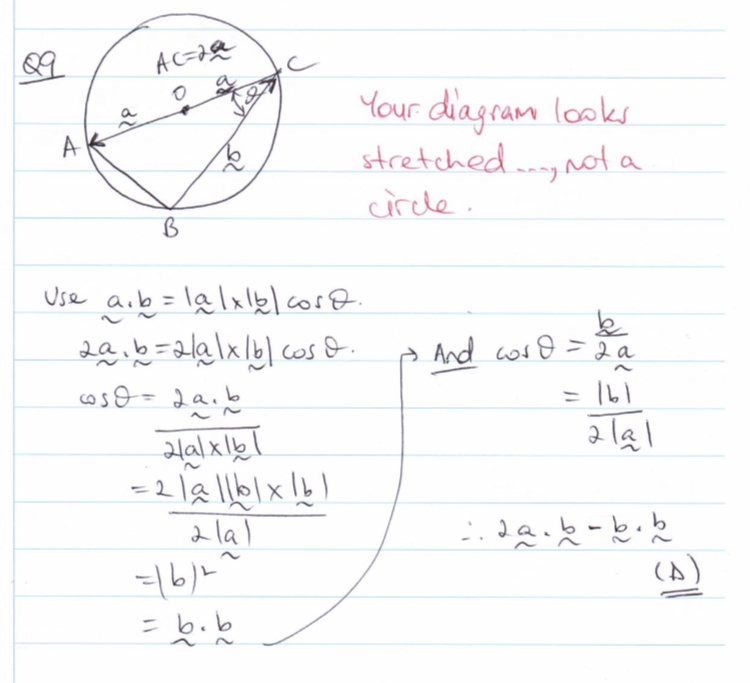 Q9
AC=2a
C
a
θ
O
a
A
b
B
Your diagram looks
stretched...., not a
circle.
Use a.b = |a|x|b| cosθ.
2a.b = 2|a|x|b| cosθ.
cosθ = 2a.b
2|a|x|b|
= 2|a||b| x |b|
2|a|
= |b|²
= b.b
And cosθ = b
2a
= |b|
2|a|
∴ 2a.b - b.b
(A)